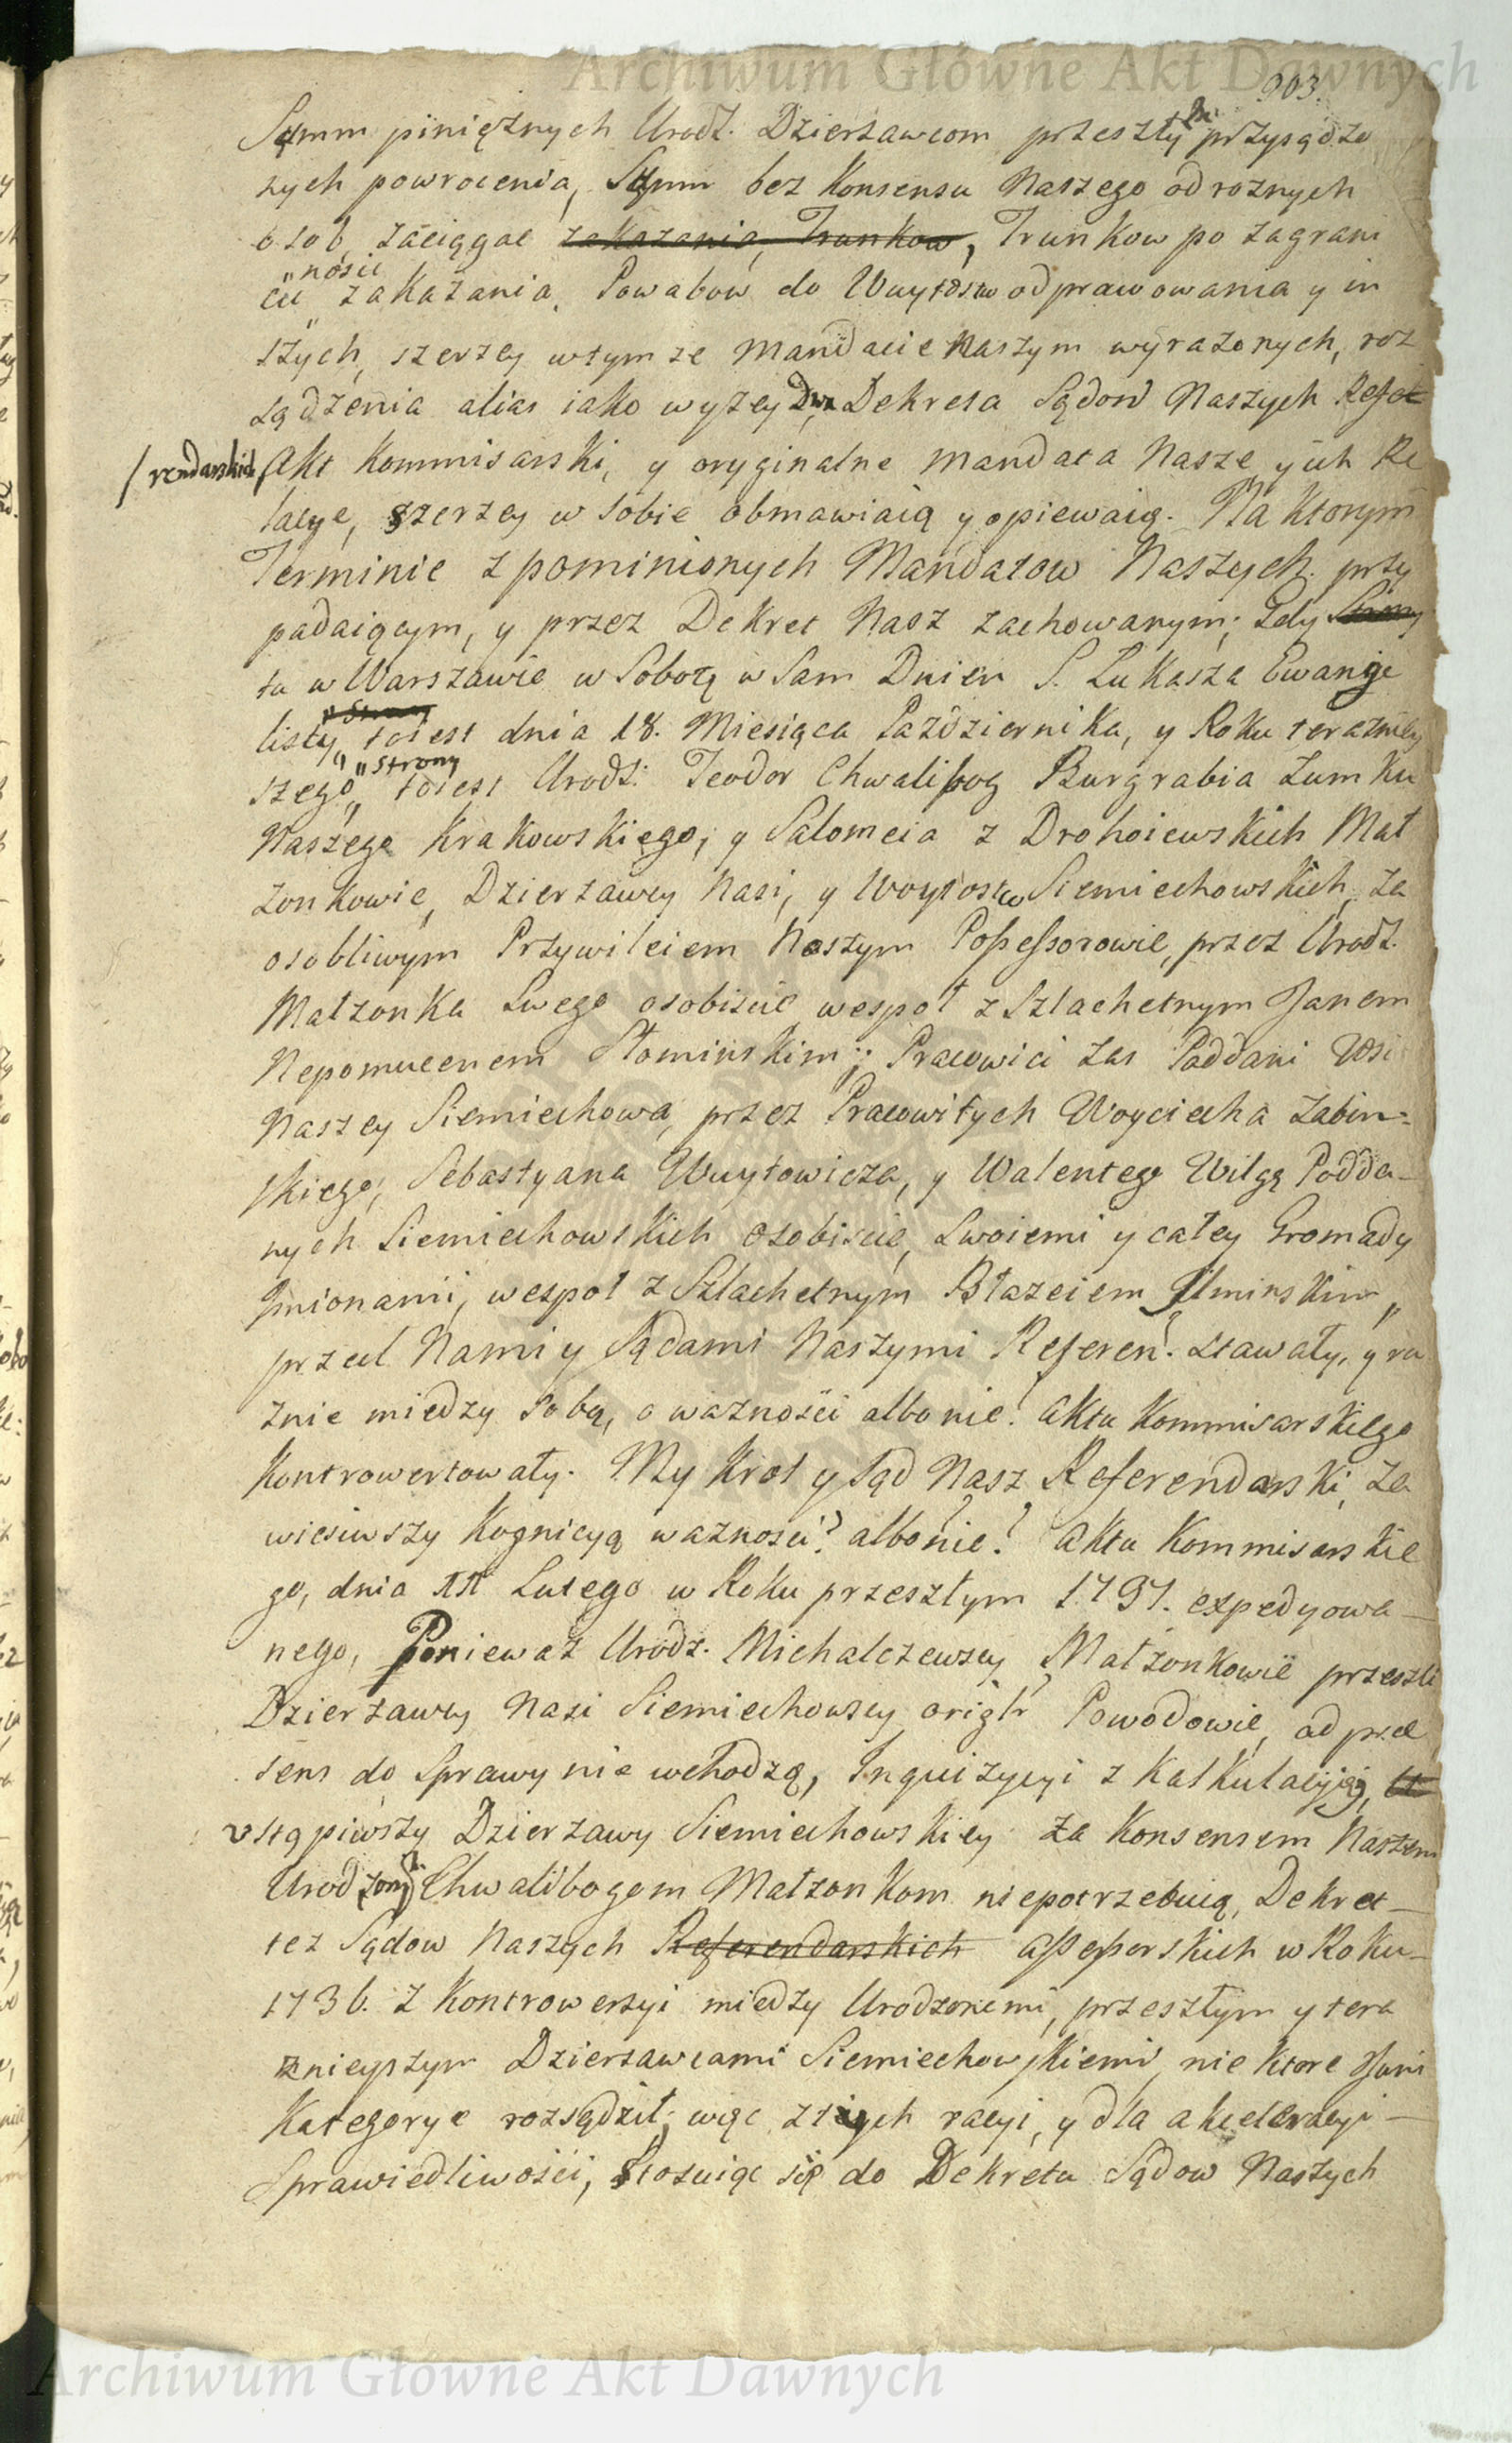 Archiwum Główne Akt Dawnych
903.
Summ piniężnych Urodz. Dzierżawcom przeszłym przysądzo
nych powrocenia, Summ bez Konsensu Naszego od roznych
osob, záciągac zakazania, Trunkow, Trunkow po zagrani
nosic
cu zakazania, Powabow do Wuytostw odprawowania y in
szych, szerzey wtymze Mandacie Naszym wyrazonych, roz
sądzenia alias iako wyzey Dwa Dekreta Sądow Naszych Refe
rendarskich Akt Kommisarski, y oryginalne Mandata Nasze y ich Re
lacye, szerzey w sobie obmawiaią y opiewaią. Na Ktorym
Terminie z pominionych Mandatow Naszych przy
padaiącym, y przez Dekret Nasz zachowanym; Gdy Strony
tu w Warszawie w Sobotę w Sam Dzien S. Łukasza Ewange
listy, toiest dnia 18. Miesiąca Pazdziernika, y Roku terazniey
Strony
szego, toiest Urodz: Teodor Chwalibog Burgrabia Zamku
Naszego Krakowskiego, y Salomeia z Drohoiewskich Mał
zonkowie, Dzierzawcy Nasi, y Woytostw Siemiechowskich, za
osobliwym Przywileiem Naszym Possessorowie, przez Urodz.
Małzonka Swego osobiscie wespoł z Szlachetnym Janem
Nepomucenem Słominskim; Pracowici zas Poddani Wsi
Naszey Siemiechowa, przez Pracowitych Woyciecha Zabin-
skiego, Sebastyana Wuytowicza, y Walentego Wilgę Podda-
nych Siemiechowskich osobiscie, Swoiemi y całey Gromady
Jmionami, wespoł z Szlachetnym Błazeiem Ilminskim,
przed Nami y Sądami Naszymi Referen. stawały, y ro
znie miedzy sobą, o waznosci albo nie? Aktu Kommisarskiego
Kontrowertowały. My Krol y Sąd Nasz Referendarski, za
wiesiwszy Kognicyą waznosci? albo nie? Aktu Kommisarskie
go, dnia Lutego w Roku przeszłym expedyowa-
nego, Poniewaz Urodz. Michalczewscy Małzonkowie przeszli
Dzierzawcy Nasi Siemiechowscy Powodowie, ad prae
sens do Sprawy nie wchodzą, Inquizycyi z Kalkulacyią,
ustąpiwszy Dzierzawy Siemiechowskiey za Konsensem Naszem
Urodzonym Chwalibogom Małzonkom niepotrzebuią, Dekret-
tez Sądow Naszych Referendarskich Assessorskich w Roku-
1736. z Kontrowersyi miedzy Urodzonemi, przeszłym y tera
znieyszym Dzierzawcami Siemiechowskiemi, nie Ktore Juri
Kategorye rozsądził; więc z tych racyi, y dla akceleracyi-
Sprawiedliwości, Stosuiąc się do Dekretu Sądow Naszych
Archiwum Główne Akt Dawnych